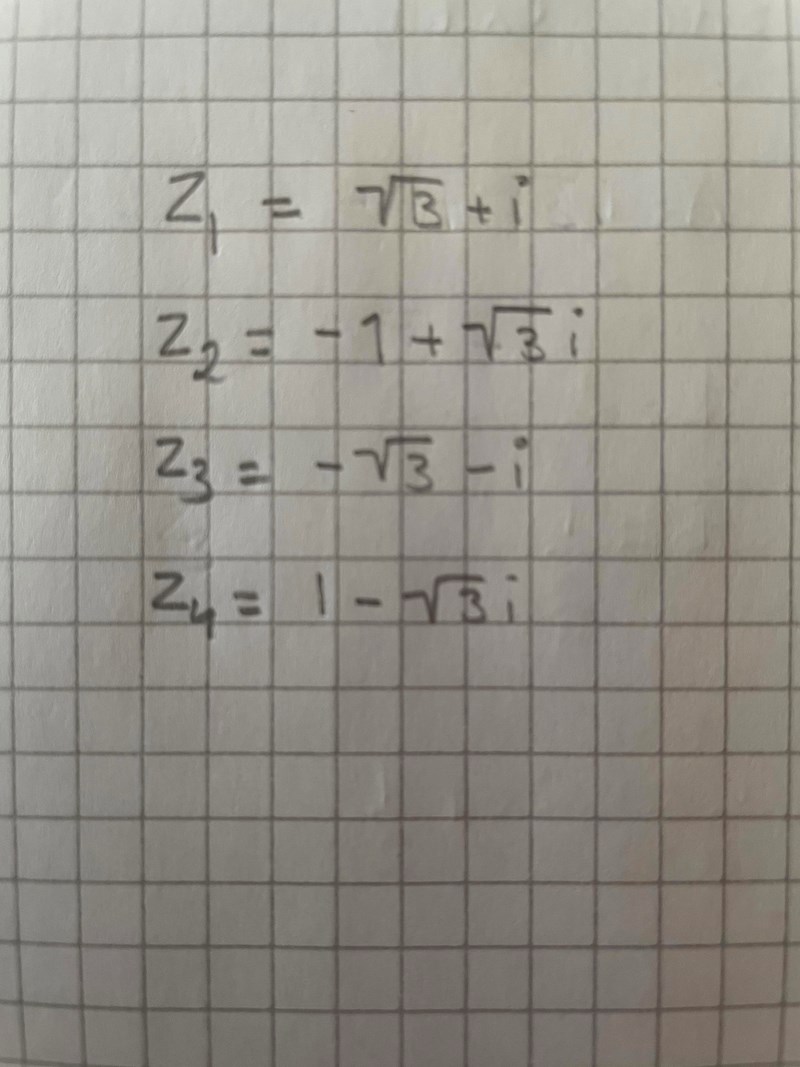 Z₁ = √3 + i
Z₂ = -1 + √3 i
Z₃ = -√3 - i
Z₄ = 1 - √3 i